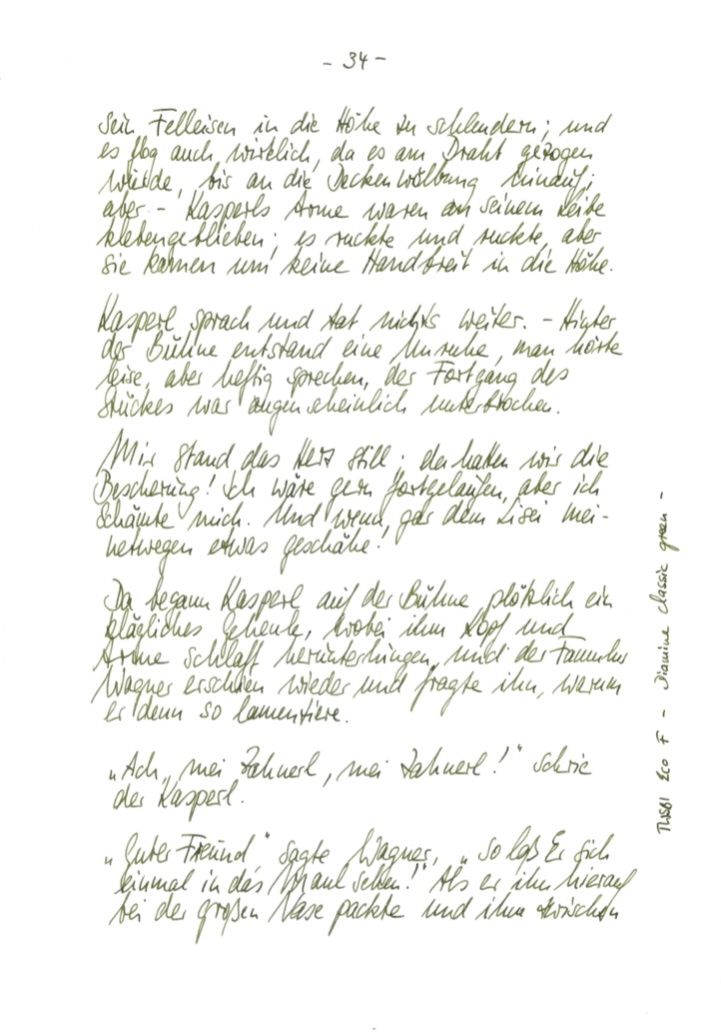 - 34 -
sein Felleisen in die Höhe zu schleudern; und
es flog auch wirklich, da es am Draht gezogen
wurde, bis an die Deckenwölbung hinauf;
aber - Kasperls Arme waren an seinem Leibe
klebengeblieben; es ruckte und ruckte, aber
sie kamen um keine Handbreit in die Höhe.
Kasperl sprach und tat nichts weiter. - Hinter
der Bühne entstand eine Unruhe, man hörte
leise, aber heftig sprechen, der Fortgang des
Stückes war augenscheinlich unterbrochen.
Mir stand das Herz still; da hatten wir die
Bescherung! Ich wäre gern fortgelaufen, aber ich
schämte mich. Und wenn gar dem Lisei mei-
netwegen etwas geschähe!
Da begann Kasperl auf der Bühne plötzlich ein
klägliches Geheule, wobei ihm Kopf und
Arme schlaff herunterhingen, und der Famulus
Wagner erschien wieder und fragte ihn, warum
er denn so lamentiere.
„Ach, mei Zahnerl, mei Zahnerl!" schrie
der Kasperl.
„Guter Freund" sagte Wagner, „so laß Er sich
einmal in das Maul sehen!" Als er ihn hierauf
bei der großen Nase packte und ihm zwischen
TWSBI Eco F - Diamine classic green -